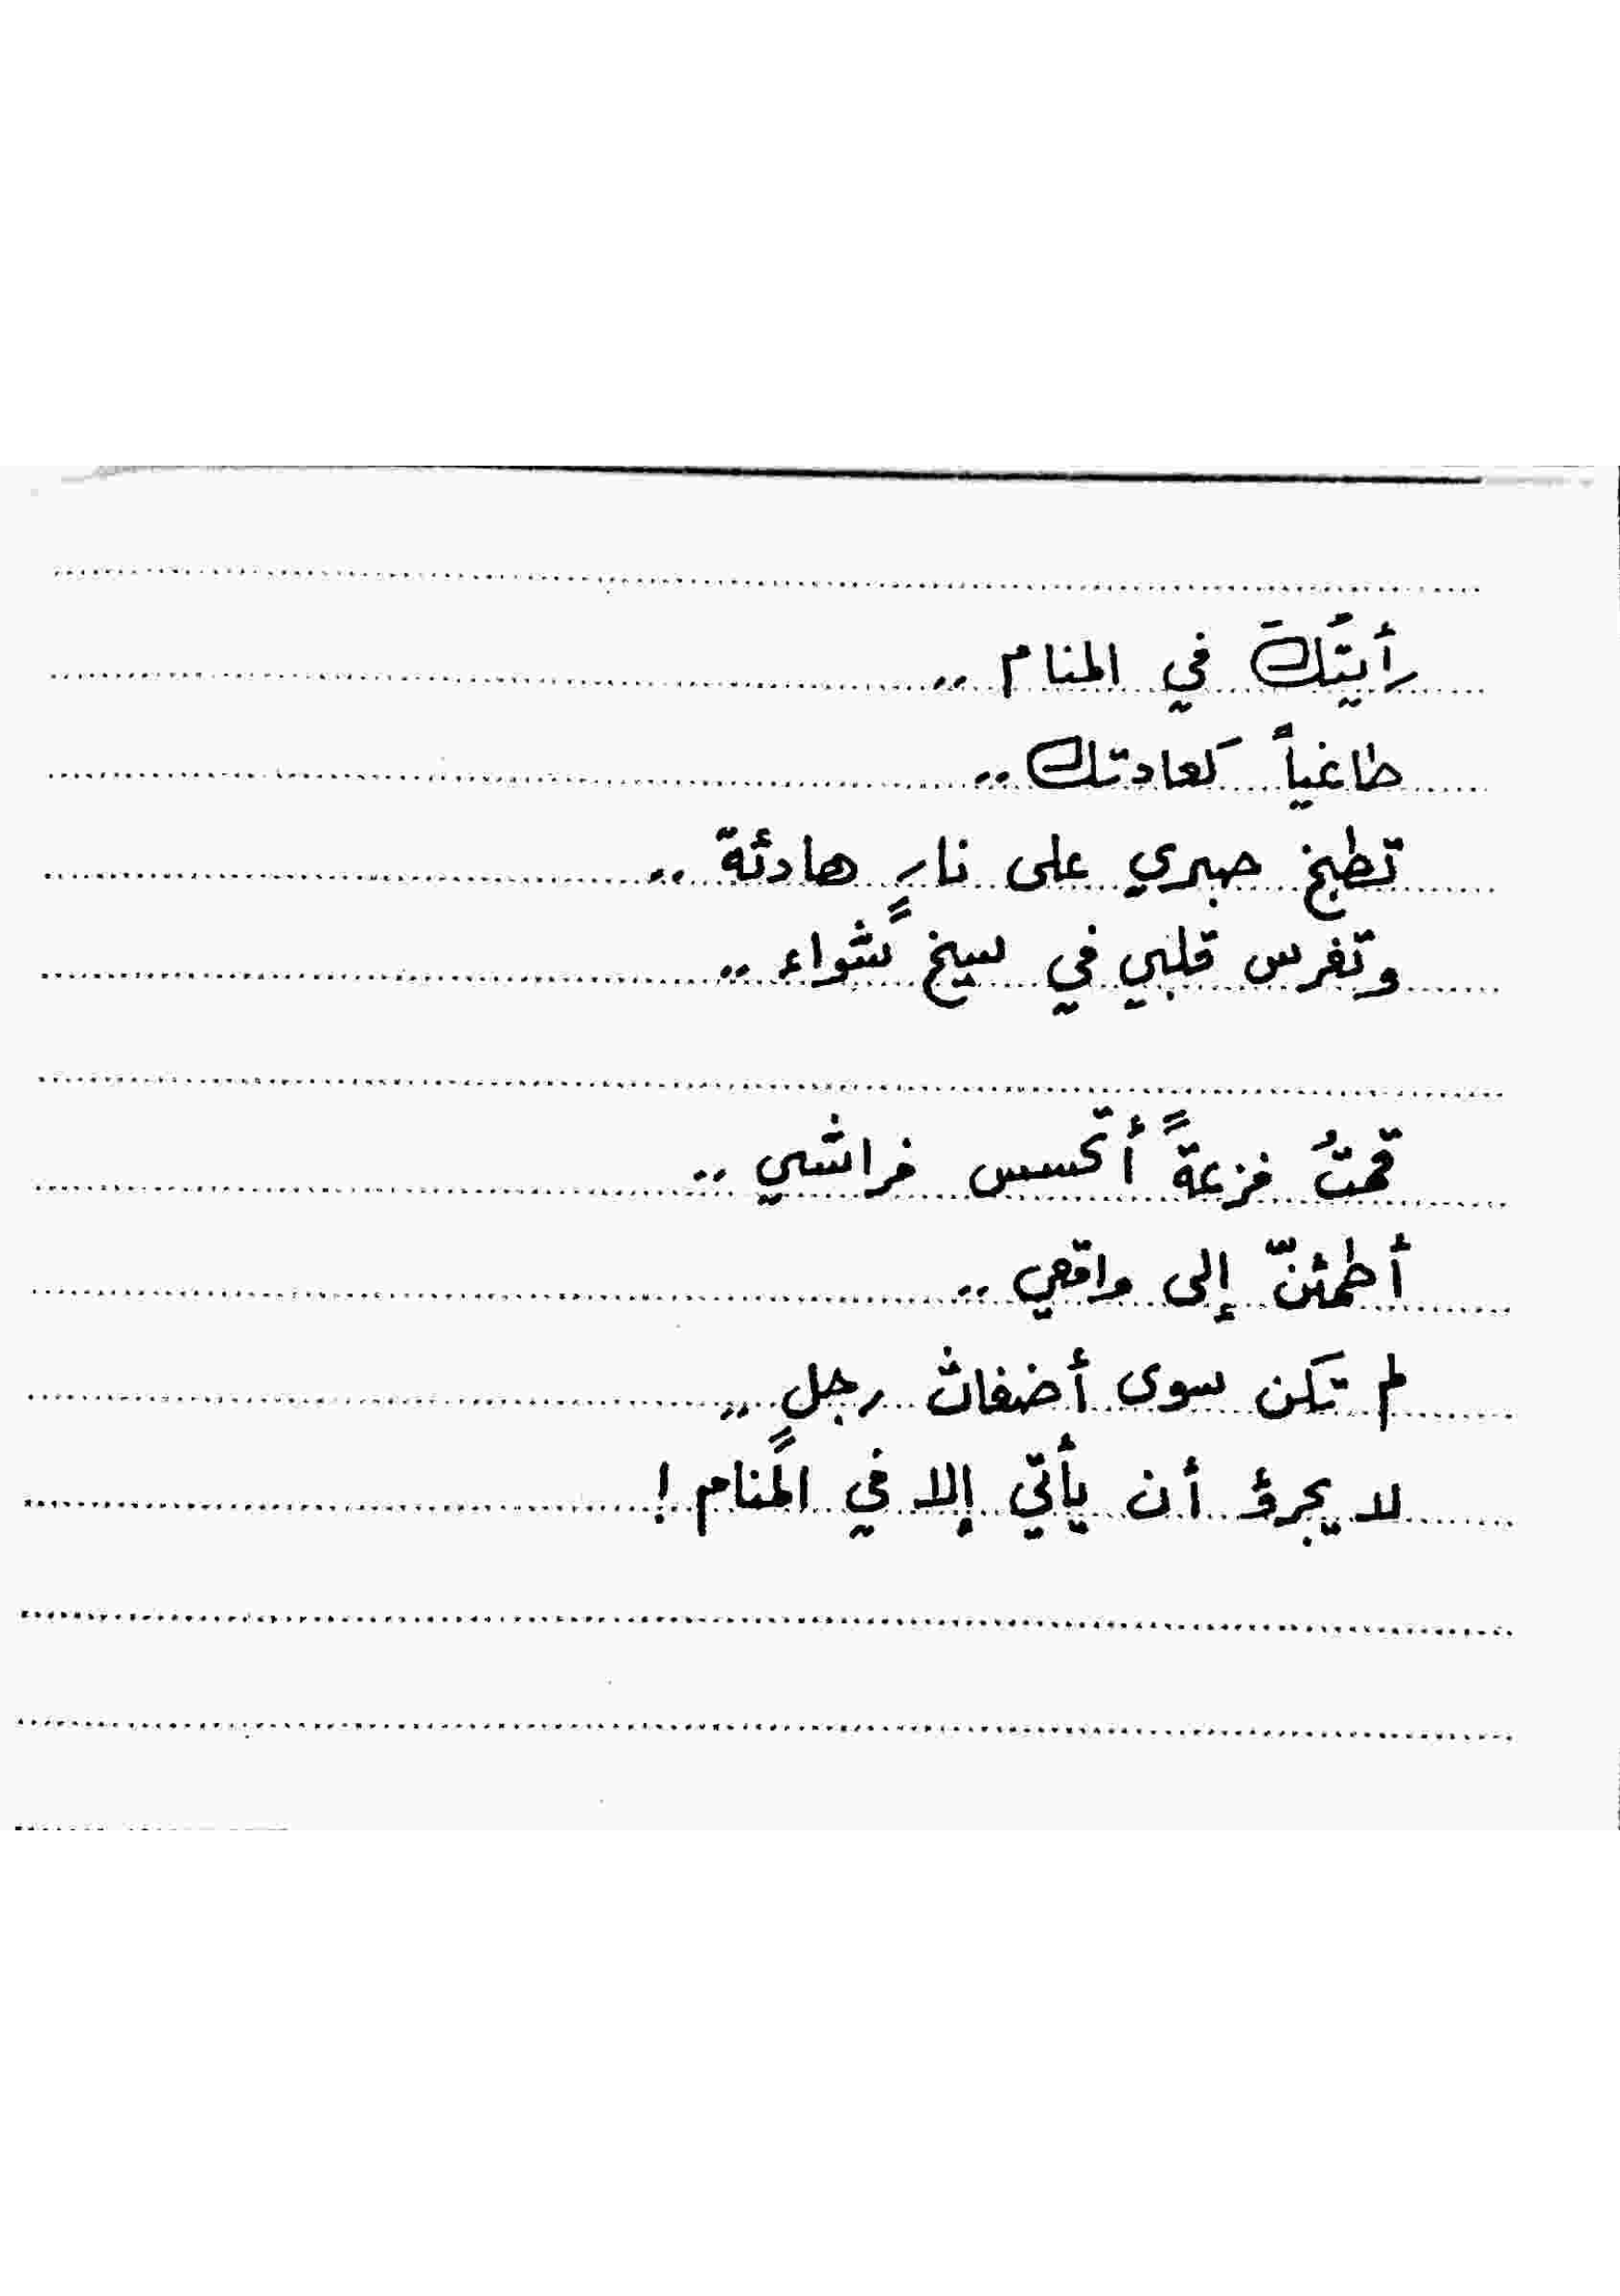 رأيتُكَ في المنام ..
طاغياً كعادتك ..
تطبخ صبري على نارٍ هادئة ..
وتغرس قلبي في سيخ شواء ..
قمتُ فزعةً أتحسس فراشي ..
أطمئنّ إلى واقعي ..
لم تكن سوى أضغاث رجلٍ ..
لا يجرؤ أن يأتي إلا في المنام !